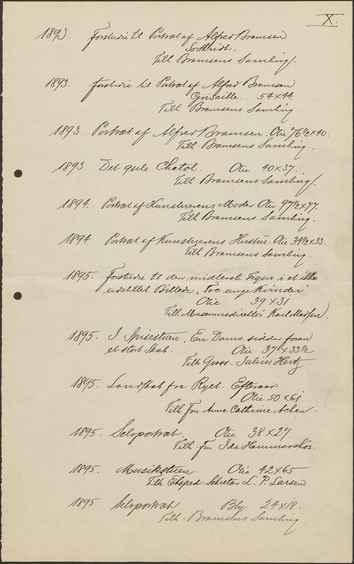 X.
1893. Forstudie til Portræt af Alfred Bramsen
Sortkridt.
Tilh Bramsens Samling.
1893. Forstudie til Portræt af Alfred Bramsen
Grisaille. 54x44
Tilh Bramsens Samling
1893 Portræt af Alfred Bramsen. Olie 76½x40.
Tilh Bramsens Samling.
1893 Det gule Chatol. Olie 40x37.
Tilh Bramsens Samling.
1894. Portræt af Kunstnerens Moder Olie 97½x77.
Tilh Bramsens Samling.
1894 Portræt af Kunstnerens Hustru. Olie 39½x33.
Tilh Bramsens Samling
1895. Forstudie til den midterste Figur i et
udstillet Billede, tre unge Kvinder
Olie 39x31
Tilh Museumsdirektør Karl Madsen.
1895. I Spisestuen. En Dame sidder foran
et stort Skab. Olie 37x33½
Tilh Gross. Julius Hertz
1895. Landskab fra Ryet. Efteraar
Olie 50x61
Tilh Frk Anna Cathrine
1895. Selvportræt Olie 38x27
Tilh Fru Ida Hammershøi.
1895. Musikstuen Olie 42x65
Tilh Exped. Sekretær L. P. Larsen
1895 Selvportræt Bly 24x18.
Tilh. Bramsens Samling